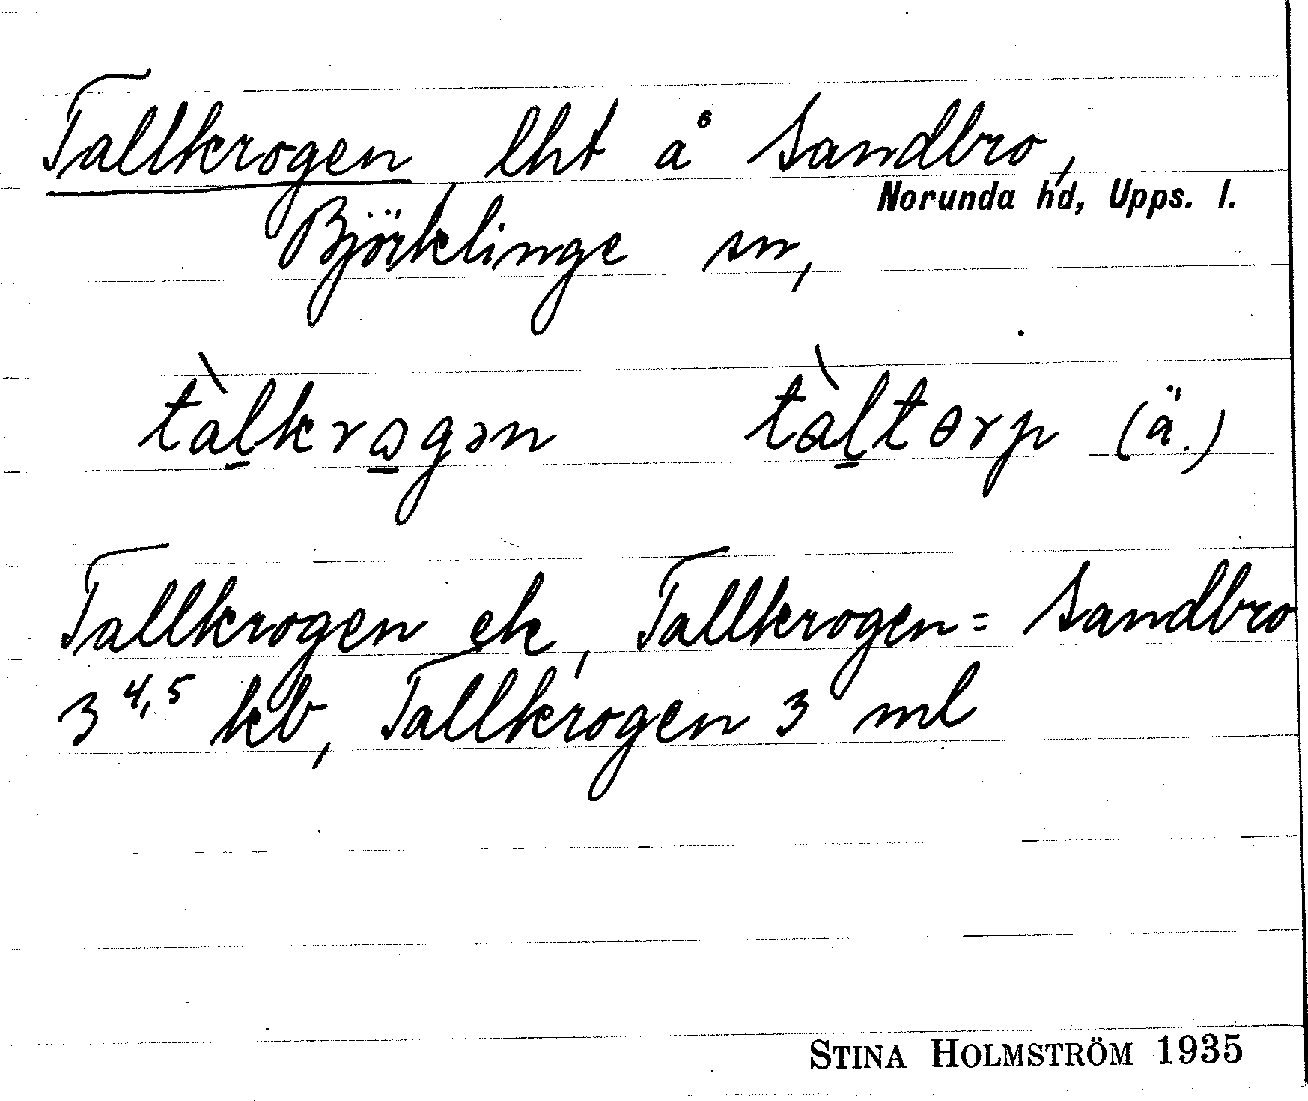 Tallkrogen, lht å Sandbro,
Norunda hd, Upps. l.
Björklinge sn,
tàl̲krɷ̲gən tàl̲tɵrp (ä.)
Tallkrogen ek, Tallkrogen = Sandbro
3 4,5 kb, Tallkrogen 3 ml
STINA HOLMSTRÖM 1935